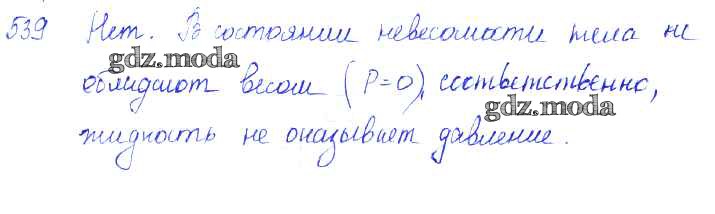 539 Нет. В состоянии невесомости тела не
gdz.moda
обладают весом (P=0), соответственно,
gdz.moda
жидкость не оказывает давление.